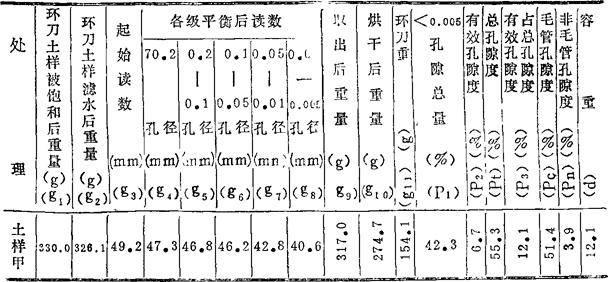 处理
环刀土样被饱和后重量(g)(g₁)
环刀土样滤水后重量(g)(g₂)
起始读数(mm)(g₃)
各级平衡后读数
70.2孔径(mm)(g₄)
0.2|0.1孔径(mm)(g₅)
0.1|0.05孔径(mm)(g₆)
0.05|0.01孔径(mm)(g₇)
孔径(mm)(g₈)
取出后重量(g)g₉)
烘干后重量(g)(g₁₀)
环刀重(g)(g₁₁)
<0.005孔隙总量(%)(P₁)
有效孔隙度(%)(P₂)
总孔隙度(%)(Pt)
有效孔隙度占总孔隙度(%)(P₃)
毛管孔隙度(%)(Pc)
非毛管孔隙度(%)(Pn)
容重(d)
土样甲 330.0 326.1 49.2 47.3 46.8 46.2 42.8 40.6 317.0 274.7 154.1 42.3 6.7 55.3 12.1 51.4 3.9 12.1